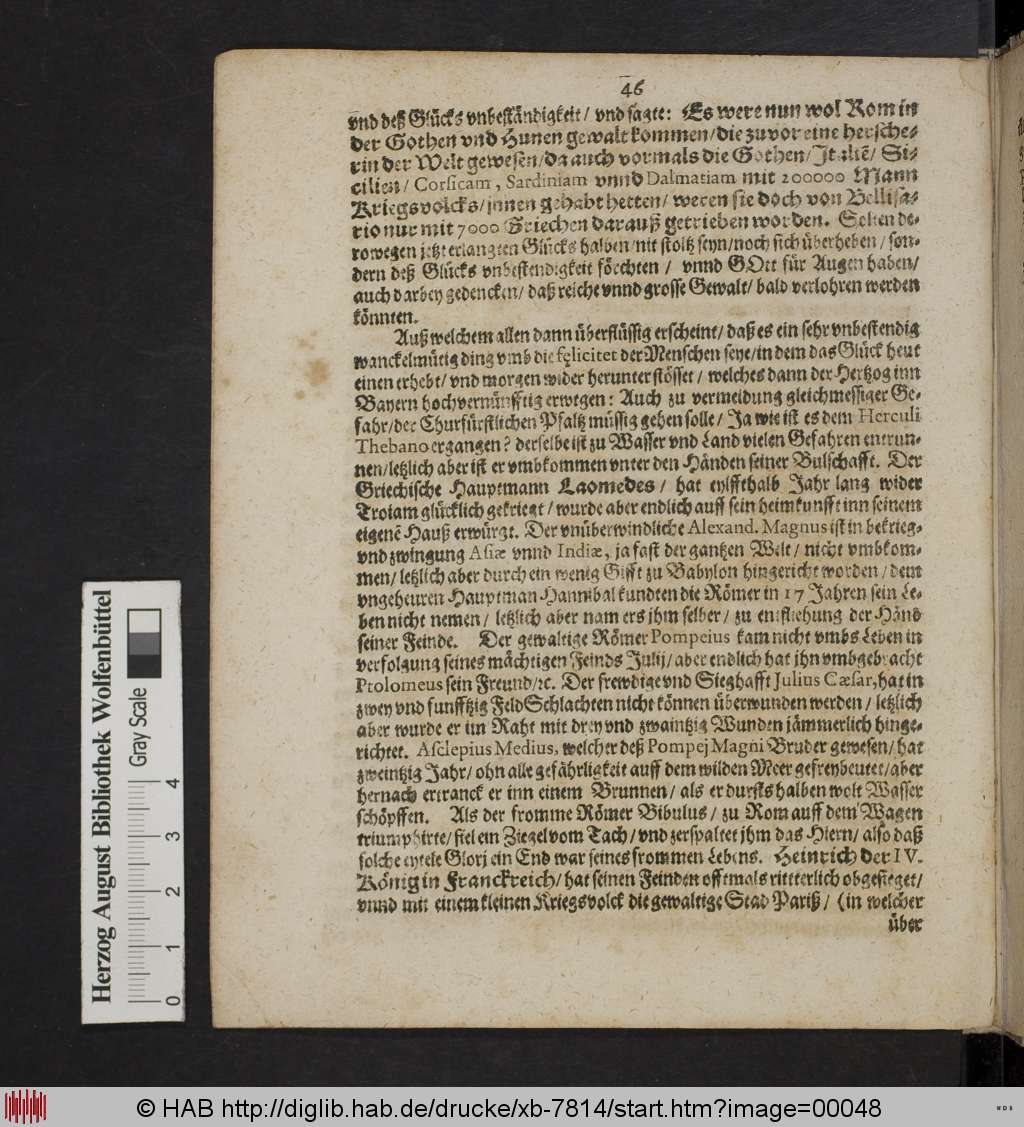 46
vnd deß Glücks vnbeständigkeit / vnd sagte: Es were nun wol Rom in
der Gothen vnd Hunen gewalt kommen / die zuvor eine hersche⸗
rin der Welt gewesen / da auch vormals die Gothen / Italiē / Si⸗
cilien / Corsicam, Sardiniam vnnd Dalmatiam mit 200000 Mann
Kriegsvolcks / jnnen gehabt hetten / weren sie doch von Bellisa⸗
rio nur mit 7000 Griechen darauß getrieben worden. Solten de⸗
rowegen jetzt erlangten Glücks halben / nit stoltz seyn / noch sich überheben / son⸗
dern deß Glücks vnbestendigkeit förchten / vnnd GOtt für Augen haben /
auch darbey gedencken / daß reiche vnnd grosse Gewalt / bald verlohren werden
könnten.
Auß welchem allen dann überflüssig erscheint / daß es ein sehr vnbestendig
wanckelmütig ding vmb die fęlicitet der Menschen seye / in dem das Glück heut
einen erhebt / vnd morgen wider herunter stösset / welches dann der Hertzog inn
Bayern hochvernünfftig erwegen: Auch zu vermeidung gleichmessiger Ge⸗
fahr / der Churfürstlichen Pfaltz müssig gehen solle / Ja wie ist es dem Herculi
Thebano ergangen? derselbe ist zu Wasser vnd Land vielen Gefahren entrun⸗
nen / letzlich aber ist er vmbkommen vnter den Händen seiner Bulschafft. Der
Griechische Hauptmann Laomedes / hat eylffthalb Jahr lang wider
Troiam glücklich gekriegt / wurde aber endlich auff sein heimkunfft inn seinem
eigenē Hauß erwürgt. Der vnüberwindliche Alexand. Magnus ist in bekrieg⸗
vnd zwingung Asiæ vnnd Indiæ, ja fast der gantzen Welt / nicht vmbkom⸗
men / letzlich aber durch ein wenig Gifft zu Babylon hingericht worden / dem
vngeheuren Hauptman Hannibal kundten die Römer in 17 Jahren sein Le⸗
ben nicht nemen / letzlich aber nam ers jhm selber / zu entfliehung der Händ
seiner Feinde. Der gewaltige Römer Pompeius kam nicht vmbs Leben in
verfolgung seines mächtigen Feinds Julij / aber endlich hat jhn vmbgebracht
Ptolomeus sein Freund / ꝛc. Der frewdige vnd Sieghafft Julius Cæsar, hat in
zwey vnd funfftzig FeldSchlachten nicht können überwunden werden / letzlich
aber wurde er im Raht mit drey vnd zwaintzig Wunden jämmerlich hinge⸗
richtet. Asclepius Medius, welcher deß Pompej Magni Bruder gewesen / hat
zweintzig Jahr / ohn alle gefährligkeit auff dem wilden Meer gefreybeutet / aber
hernach ertranck er inn einem Brunnen / als er dursts halben wolt Wasser
schöpffen. Als der fromme Römer Bibulus / zu Rom auff dem Wagen
triumphirte / fiel ein Ziegel vom Tach / vnd zerspaltet jhm das Hiern / also daß
solche eytele Glorj ein End war seines frommen Lebens. Heinrich der IV.
König in Franckreich / hat seinen Feinden offtmals rittterlich obgesieget /
vnnd mit einem kleinen Kriegsvolck die gewaltige Stad Pariß / (in welcher
über
Herzog August Bibliothek Wolfenbüttel
Gray Scale
0 1 2 3 4
© HAB http://diglib.hab.de/drucke/xb-7814/start.htm?image=00048
WDB